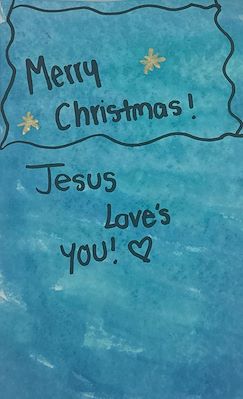 Merry
Christmas!
Jesus
Love's
YOU! ♡